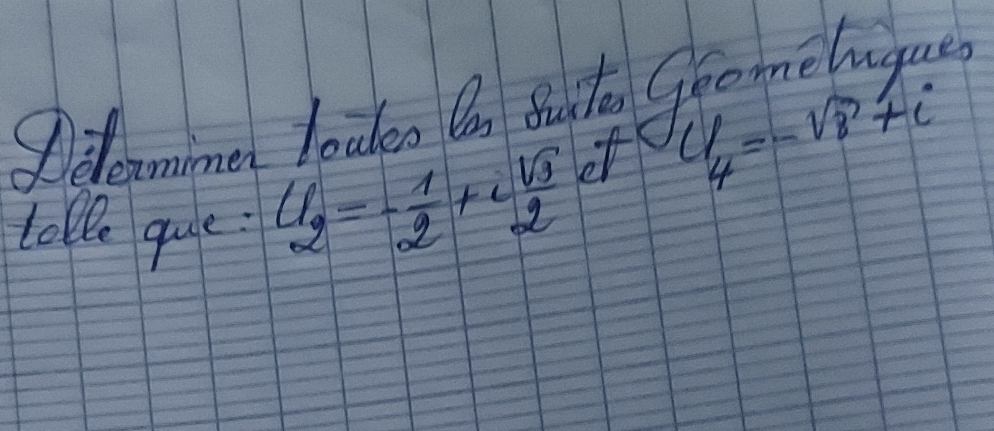 Déterminer toutes les suites Géométriques
telle que : U₂ = -1/2 + i √3/2 et U₄ = -√3 + i